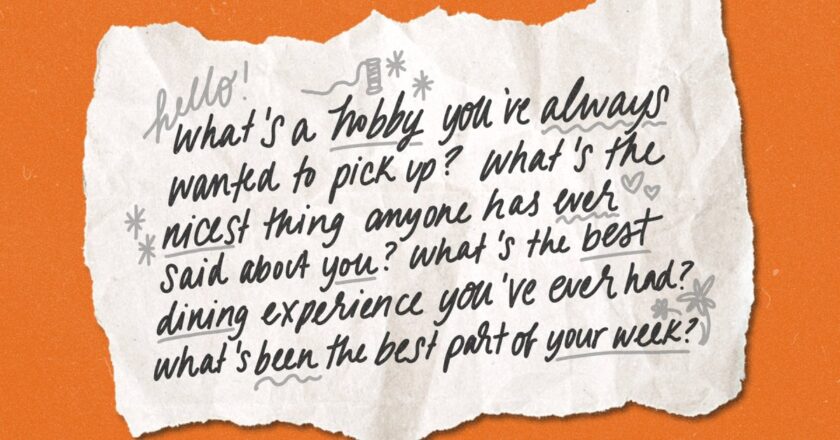 hello!
what's a hobby you've always
wanted to pick up? what's the
nicest thing anyone has ever
said about you? what's the best
dining experience you've ever had?
what's been the best part of your week?